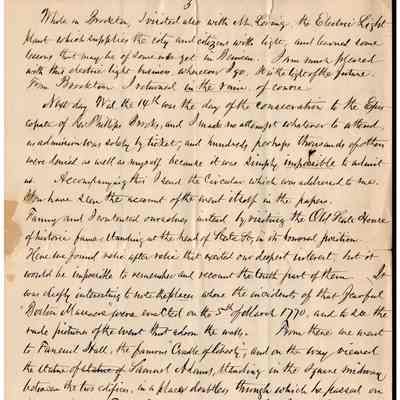 3
While in Brockton, I visited also with Mr. Loring, the Electric Light
plant which supplies the city and citizens with light, and learned some
lessons that may be of some use yet in Duncan. I am much pleased
with this electric light business wherever I go. It is the light of the future.
From Brockton I returned in the rain of course
Next day Wed. the 14th was the day of the consecration to the Epis-
copate of Rev Phillips Brooks, and I made no attempt whatever to attend,
as admission was solely by ticket; and hundreds, perhaps thousands of others
were denied as well as myself because it was simply impossible to admit
us. Accompanying this I send the Circular which was addressed to me.
You have seen the account of the event itself in the papers.
Fanny and I contented ourselves instead by visiting the Old State House
of historic fame, standing at the head of State St, in its honored position.
Here we found relic after relic that excited our deepest interest, but it
would be impossible to remember and recount the tenth part of them. It
was deeply interesting to note the places where the incidents of that fearful
Boston Massacre were enacted on the 5th of March 1770, and to see the
rude pictures of the event that adorn the walls. From there we went
to Faneuil Hall, the famous "Cradle of Liberty", and on the way viewed
the statue of statue of Samuel Adams, standing in the square midway
between the two edifices, in a place doubtless through which he passed on